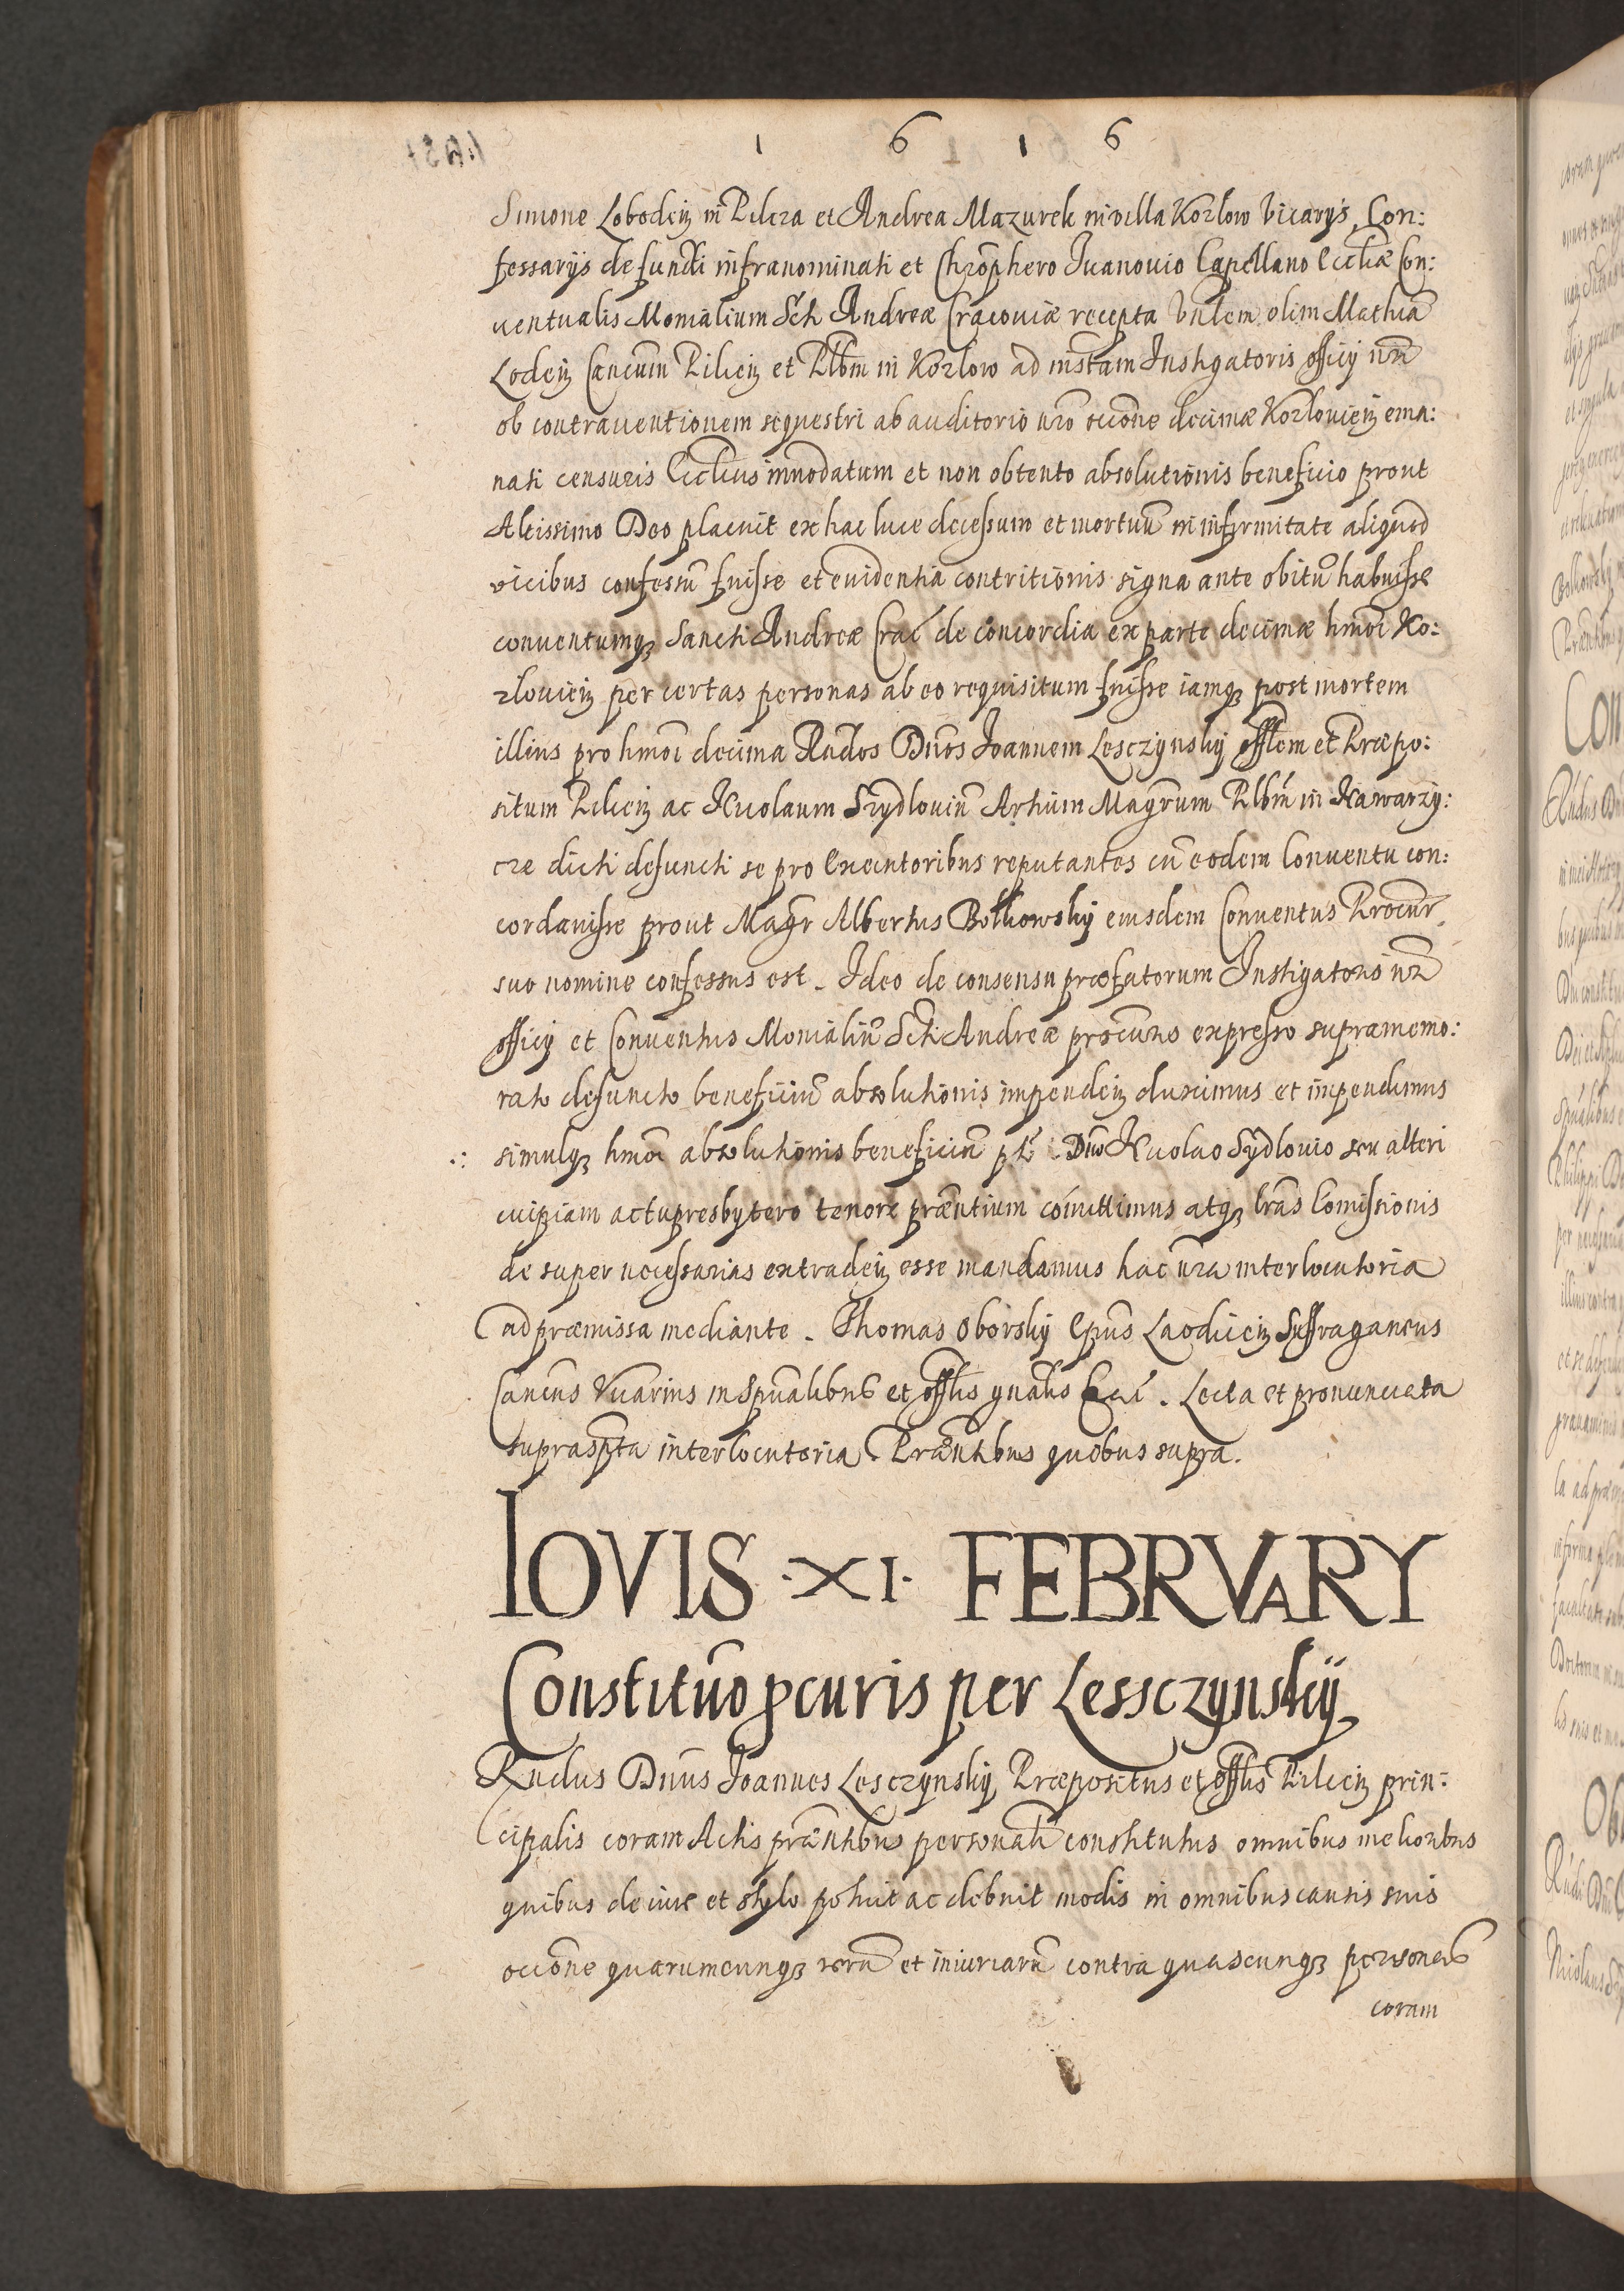 1 6 1 6
Simone Lobodeń in Pilcza et Andrea Mazurek in villa Kozlow vicarijs, Con:
fessarijs defuncti infranominati et Chrõphero Iuanouio Capellano Eccliæ Con:
uentualis Monialium Scti Andreæ Cracouiæ recepta olim Mathiã
Cancum Pilceń et Plbm in Kozlow ad instam Instigatoris officij nrĩ
ob contrauentionem sequestri ab auditorio nrõ occõne decimæ Kozlouień ema:
nati censuris Eccliius innodatum et non obtento absolutionis beneficio prout
Altissimo Deo placuit ex hac luce decessum et mortuũ in infirmitate aliquod
vicibus confessũ fuisse et euidentia contritionis signa ante obitũ habuisse
conuentumq3 Sancti Andreæ Crac̃ de concordia ex parte decimæ hmoĩ Ko:
zlouień per certas personas ab eo requisitum fuisse iamq3 post mortem
illius pro hmoĩ decima Rndos Dnos Ioannem Lesczynskij offlem et Præpo:
situm Pilceń ac Nicolaum Szydlouiũ Artium Magrum Plbm in Kawarzy:
cze dicti defuncti se pro Executoribus reputantes cũ eodem Conuentu con:
cordauisse prout Magr Albertus Bolkowskij eiusdem Conuentus Procur
suo nomine confessus est. Ideo de consensu præfatorum Instigatoris nrĩ
officij et Conuentus Monialiũ Scti Andreæ procuris expresso supramemo:
rato defuncto beneficiũ absolutionis impendeń duximus et impendimus
simulq3 hmoĩ absolutionis beneficiũ Dno Nicolao Sydlouio seu alteri
cuipiam actu presbytero tenore præntium comittimus atq3 lras Comissionis
de super necessarias extradeń esse mandamus hac nra interlocutoria
ad præmissa mediante. Thomas Oborskij Epus Laodiceń Suffraganeus
Cancus Vicarius in Spualibus et offlis gnalis Crac̃. Lecta et pronunciata
suprascpta interlocutoria Præntibus quobus supra.
IOVIS ·XI· FEBRVARY
Constitutio pcuris per Lessczynskij
Rndus Dnus Ioannes Lesczynskij Præpositus et offlis Pilceń prin:
cipalis coram Actis præntibus personali constitutus omnibus melioribus
quibus de iure et stylo potuit ac debuit modis in omnibus causis suis
occõne quarumcunq3 rerũ et iniuriarũ contra quascunq3 personas
coram